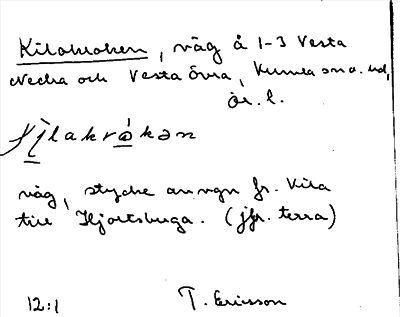 Kilakroken, väg å 1-3 Vesta
Vecka och Vesta Övra, Kumla sn o. hd,
ör. l.
Kilakråkən
väg, stycke av vgn fr. Kila
till Hjortsbuga. (jfr. terra)
12:1 T. Ericsson